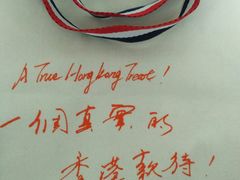 A True Hong Kong Treat!
一個真實的
香港款待!